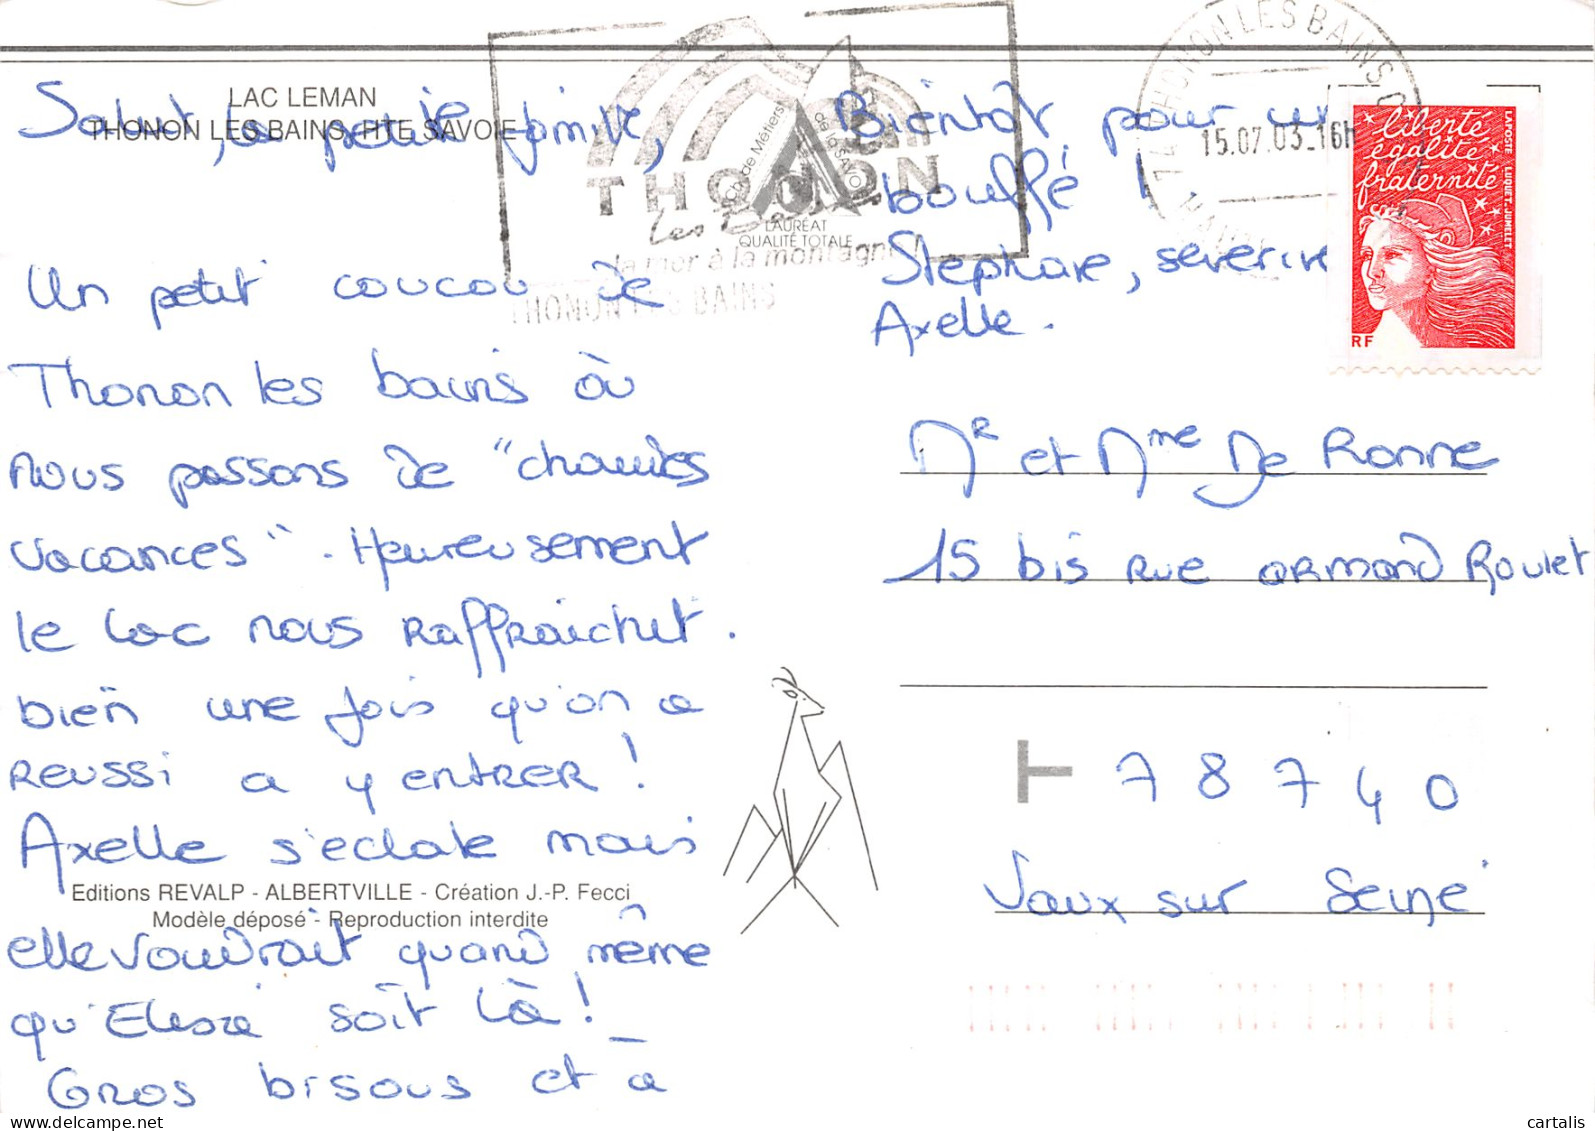 LAC LEMAN
THONON LES BAINS, HTE SAVOIE
Salut, la petite famille,
Un petit coucou de
Thonon les bains où
nous passons de "chaudes
vacances". Heureusement
le lac nous raffraichit.
bien une fois qu'on a
reussi a y entrer !
Axelle s'eclate mais
Editions REVALP - ALBERTVILLE - Création J.-P. Fecci
Modèle déposé - Reproduction interdite
elle voudrait quand même
qu' soit là !
Gros bisous et à
Bientôt pour une
bouffé !
Stephane, severine
Axelle.
THONON
Les Bains
Ch. de Métiers de la SAVOIE
LAURÉAT
QUALITÉ TOTALE
la mer à la montagne !
THONON LES BAINS
74 THONON LES BAINS
15.07.03 16h
liberté
égalité
fraternité
LA POSTE LUQUET-JUMELET
RF
Mr et Mme De Ronne
15 bis rue armand Roulet
78740
Vaux sur Seine
cartalis
www.delcampe.net